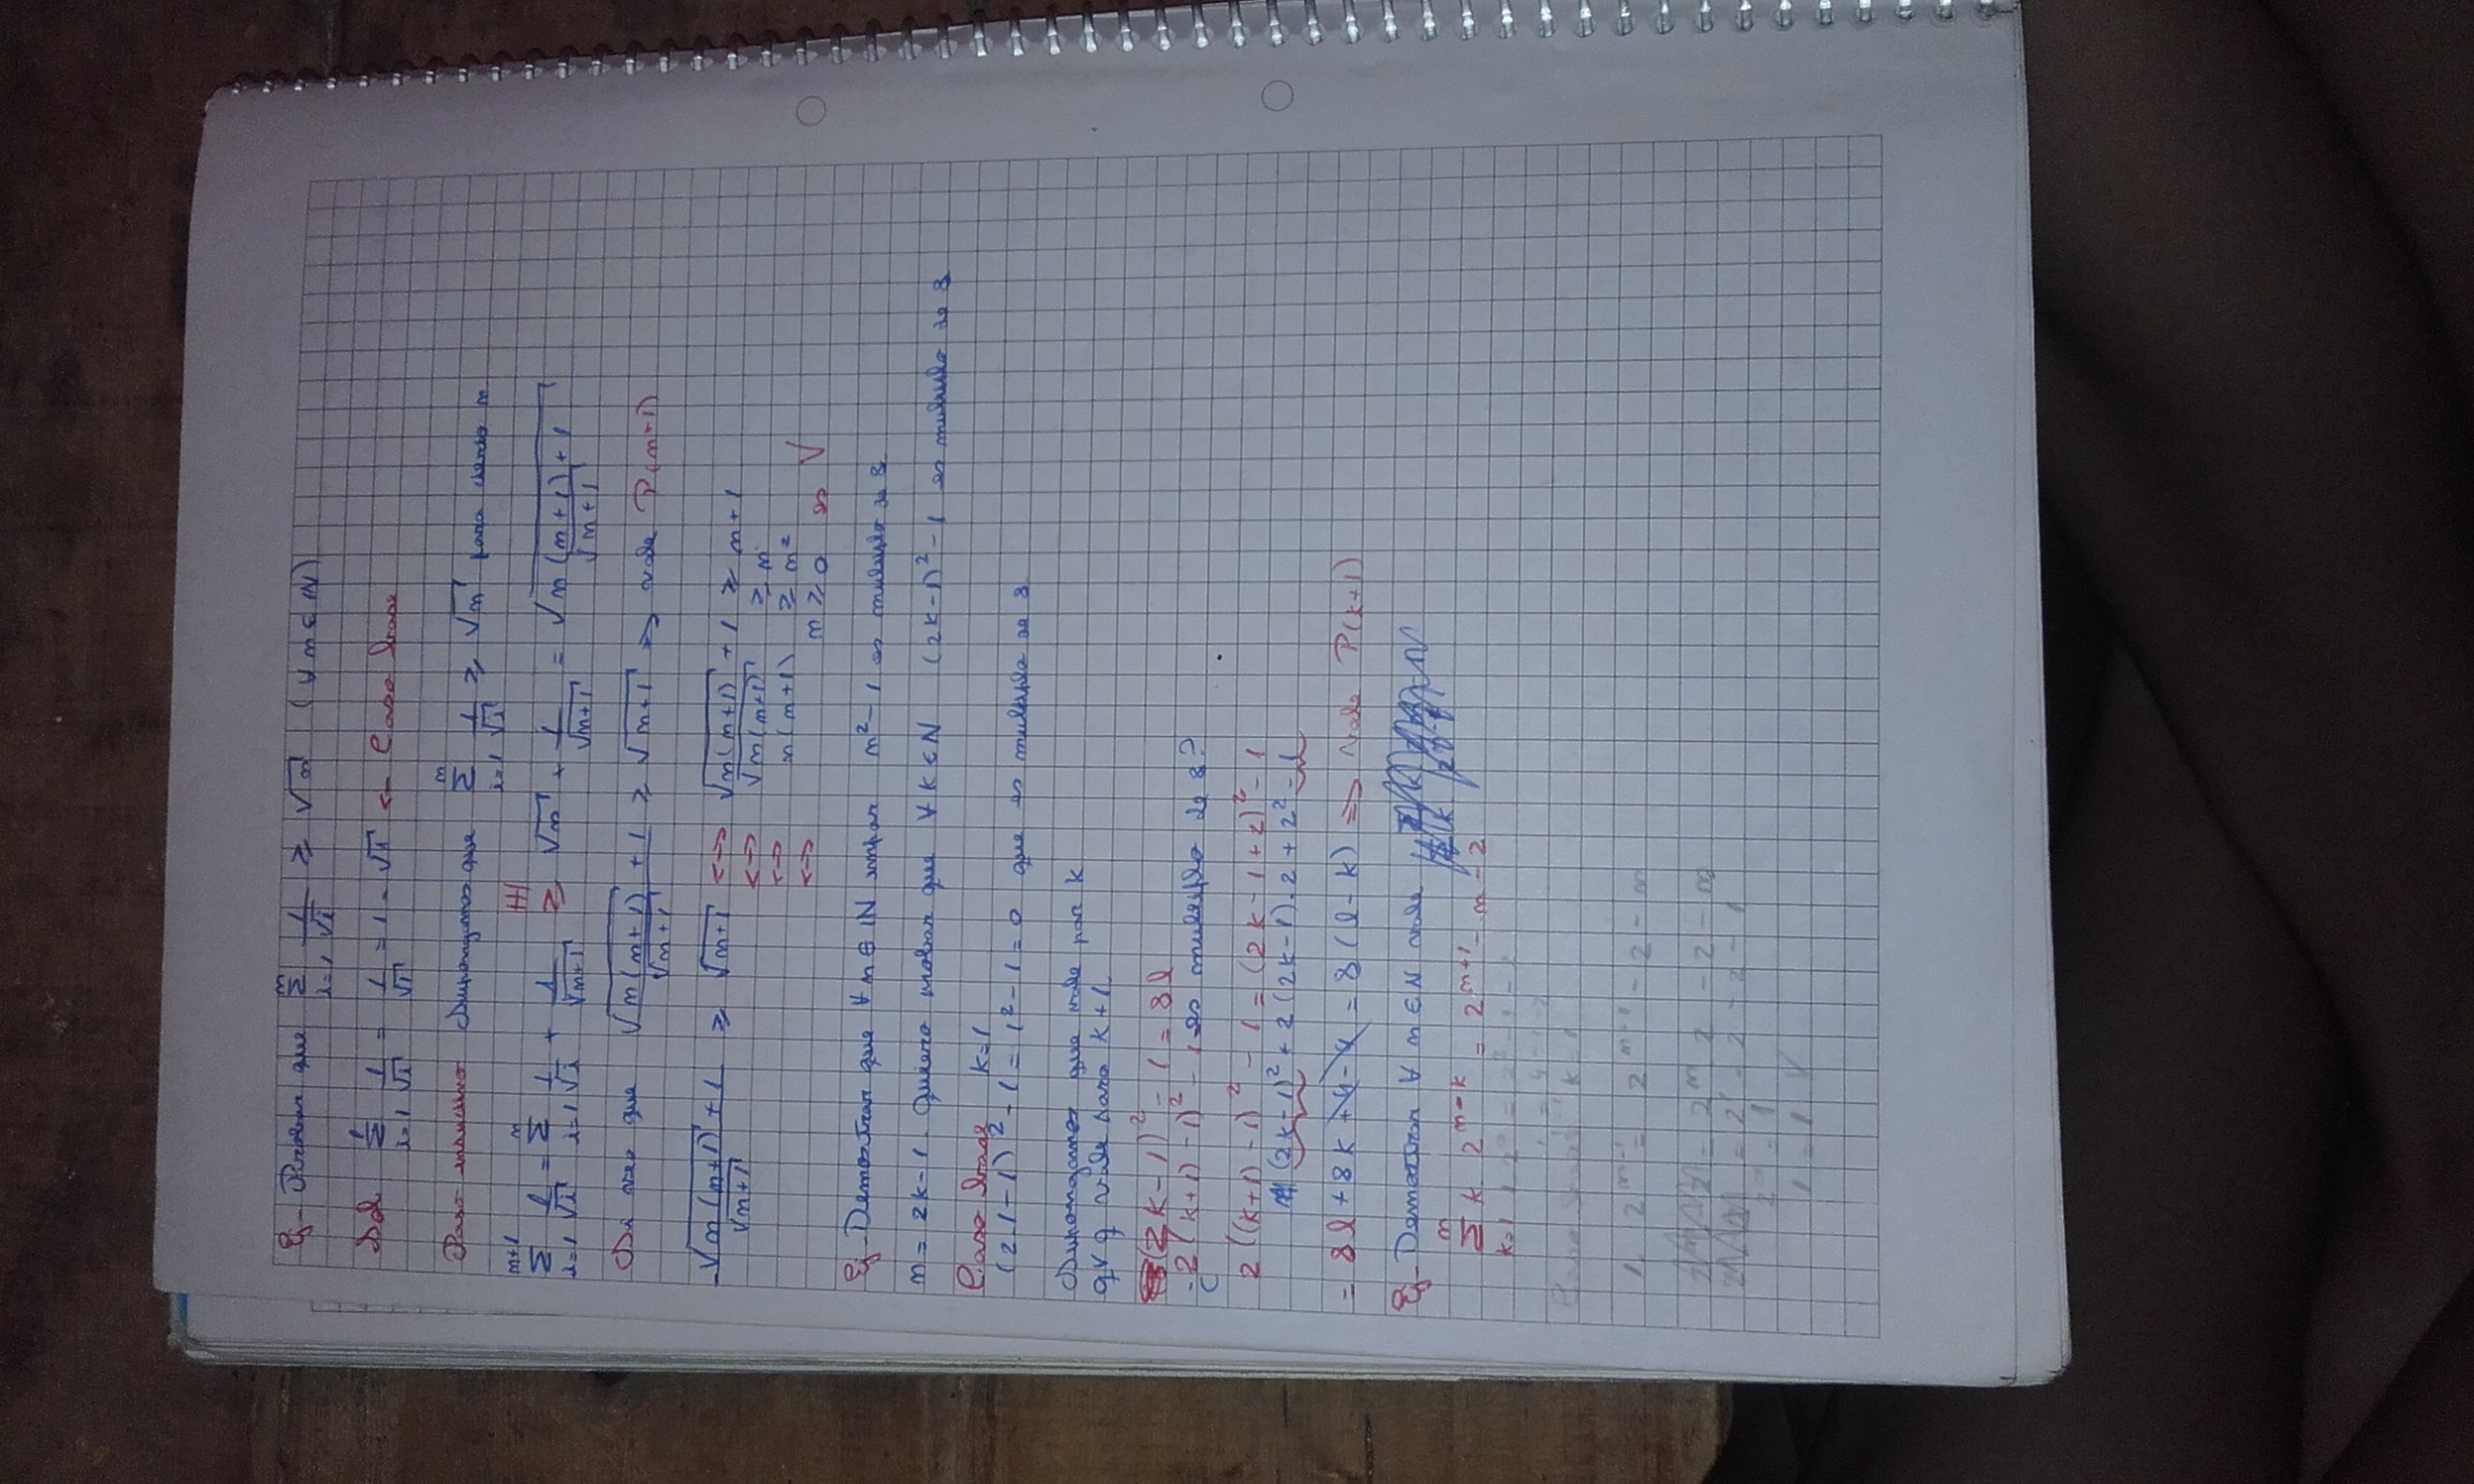 Ej- Probar que \sum_{i=1}^{n} \frac{1}{\sqrt{i}} ≥ \sqrt{n} (∀ n ∈ IN)
Sol \sum_{i=1}^{1} \frac{1}{\sqrt{i}} = \frac{1}{\sqrt{1}} = 1 = \sqrt{1} ← Caso base
Paso inductivo Supongamos que \sum_{i=1}^{n} \frac{1}{\sqrt{i}} ≥ \sqrt{n} para cierto n
\sum_{i=1}^{n+1} \frac{1}{\sqrt{i}} = \sum_{i=1}^{n} \frac{1}{\sqrt{i}} + \frac{1}{\sqrt{n+1}} ≥ (HI) \sqrt{n} + \frac{1}{\sqrt{n+1}} = \frac{\sqrt{n(n+1)+1}}{\sqrt{n+1}}
Si veo que \frac{\sqrt{n(n+1)}+1}{\sqrt{n+1}} ≥ \sqrt{n+1} ⇒ vale P(n+1)
\frac{\sqrt{n(n+1)}+1}{\sqrt{n+1}} ≥ \sqrt{n+1} <-> \sqrt{n(n+1)} + 1 ≥ n+1
<-> \sqrt{n(n+1)} ≥ n
<-> n(n+1) ≥ n²
<-> n ≥ 0 es V
Ej- Demostrar que ∀ n ∈ IN impar n² - 1 es multiplo de 8
n = 2k-1. Quiero probar que ∀ k ∈ N (2k-1)² - 1 es multiplo de 8
Caso base k=1
(2.1-1)² - 1 = 1² - 1 = 0 que es multiplo de 8
Supongamos que vale par k
qvq vale para k+1
(2k-1)² - 1 = 8l
¿2(k+1)-1)² - 1 es multiplo de 8?
2((k+1)-1)² - 1 = (2k-1+2)² - 1
(2k-1)² + 2(2k-1).2 + 2² - 1
= 8l + 8k +4-4 = 8(l-k) ⇒ vale P(k+1)
Ej- Demostrar ∀ n ∈ N vale
\sum_{k=1}^{n} k 2^{n-k} = 2^{n+1} - n - 2
Caso base k=1
1. 2^{n-1} = 2^{n+1} - 2 - n
= 2^{n} 2 - 2 - n
= 2^{1} . 2 - 2 - 1
2^{0} = 1
1 = 1 ✓